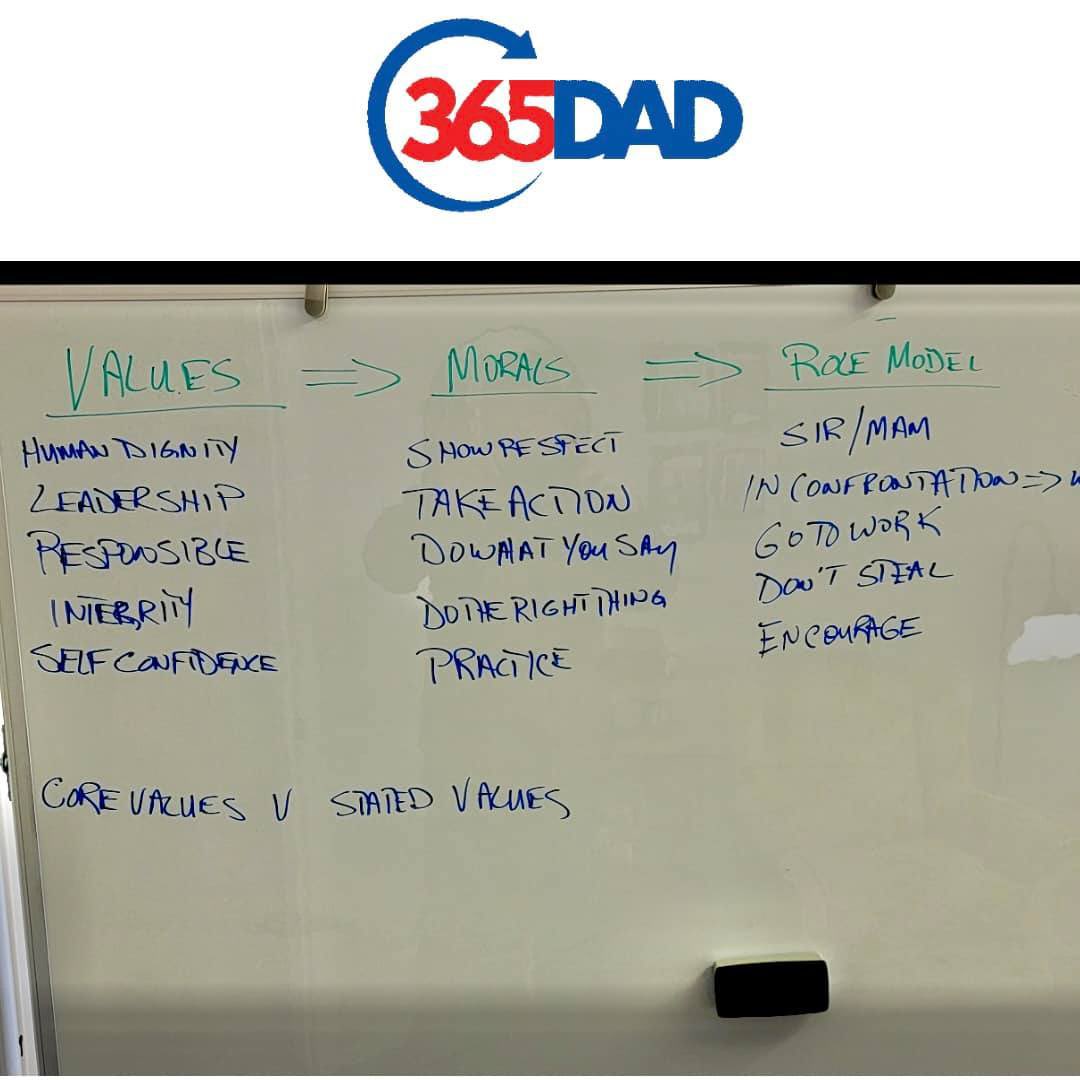 365DAD
VALUES => MORALS => ROLE MODEL
HUMAN DIGNITY SHOW RESPECT SIR/MAM
LEADERSHIP TAKE ACTION IN CONFRONTATION =>
RESPONSIBLE DO WHAT YOU SAY GO TO WORK
INTEGRITY DO THE RIGHT THING DON'T STEAL
SELF CONFIDENCE PRACTICE ENCOURAGE
CORE VALUES V STATED VALUES